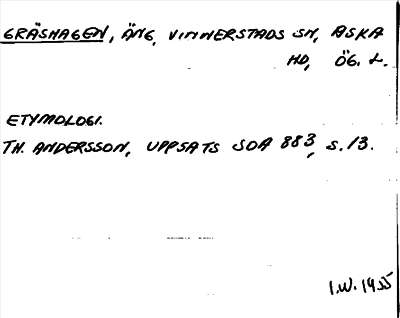 GRÄSHAGEN, ÄNG, VINNERSTADS SN, ASKA
HD, ÖG. L.
ETYMOLOGI.
TH. ANDERSSON, UPPSATS SOA 883, S. 13.
I.W. 1955